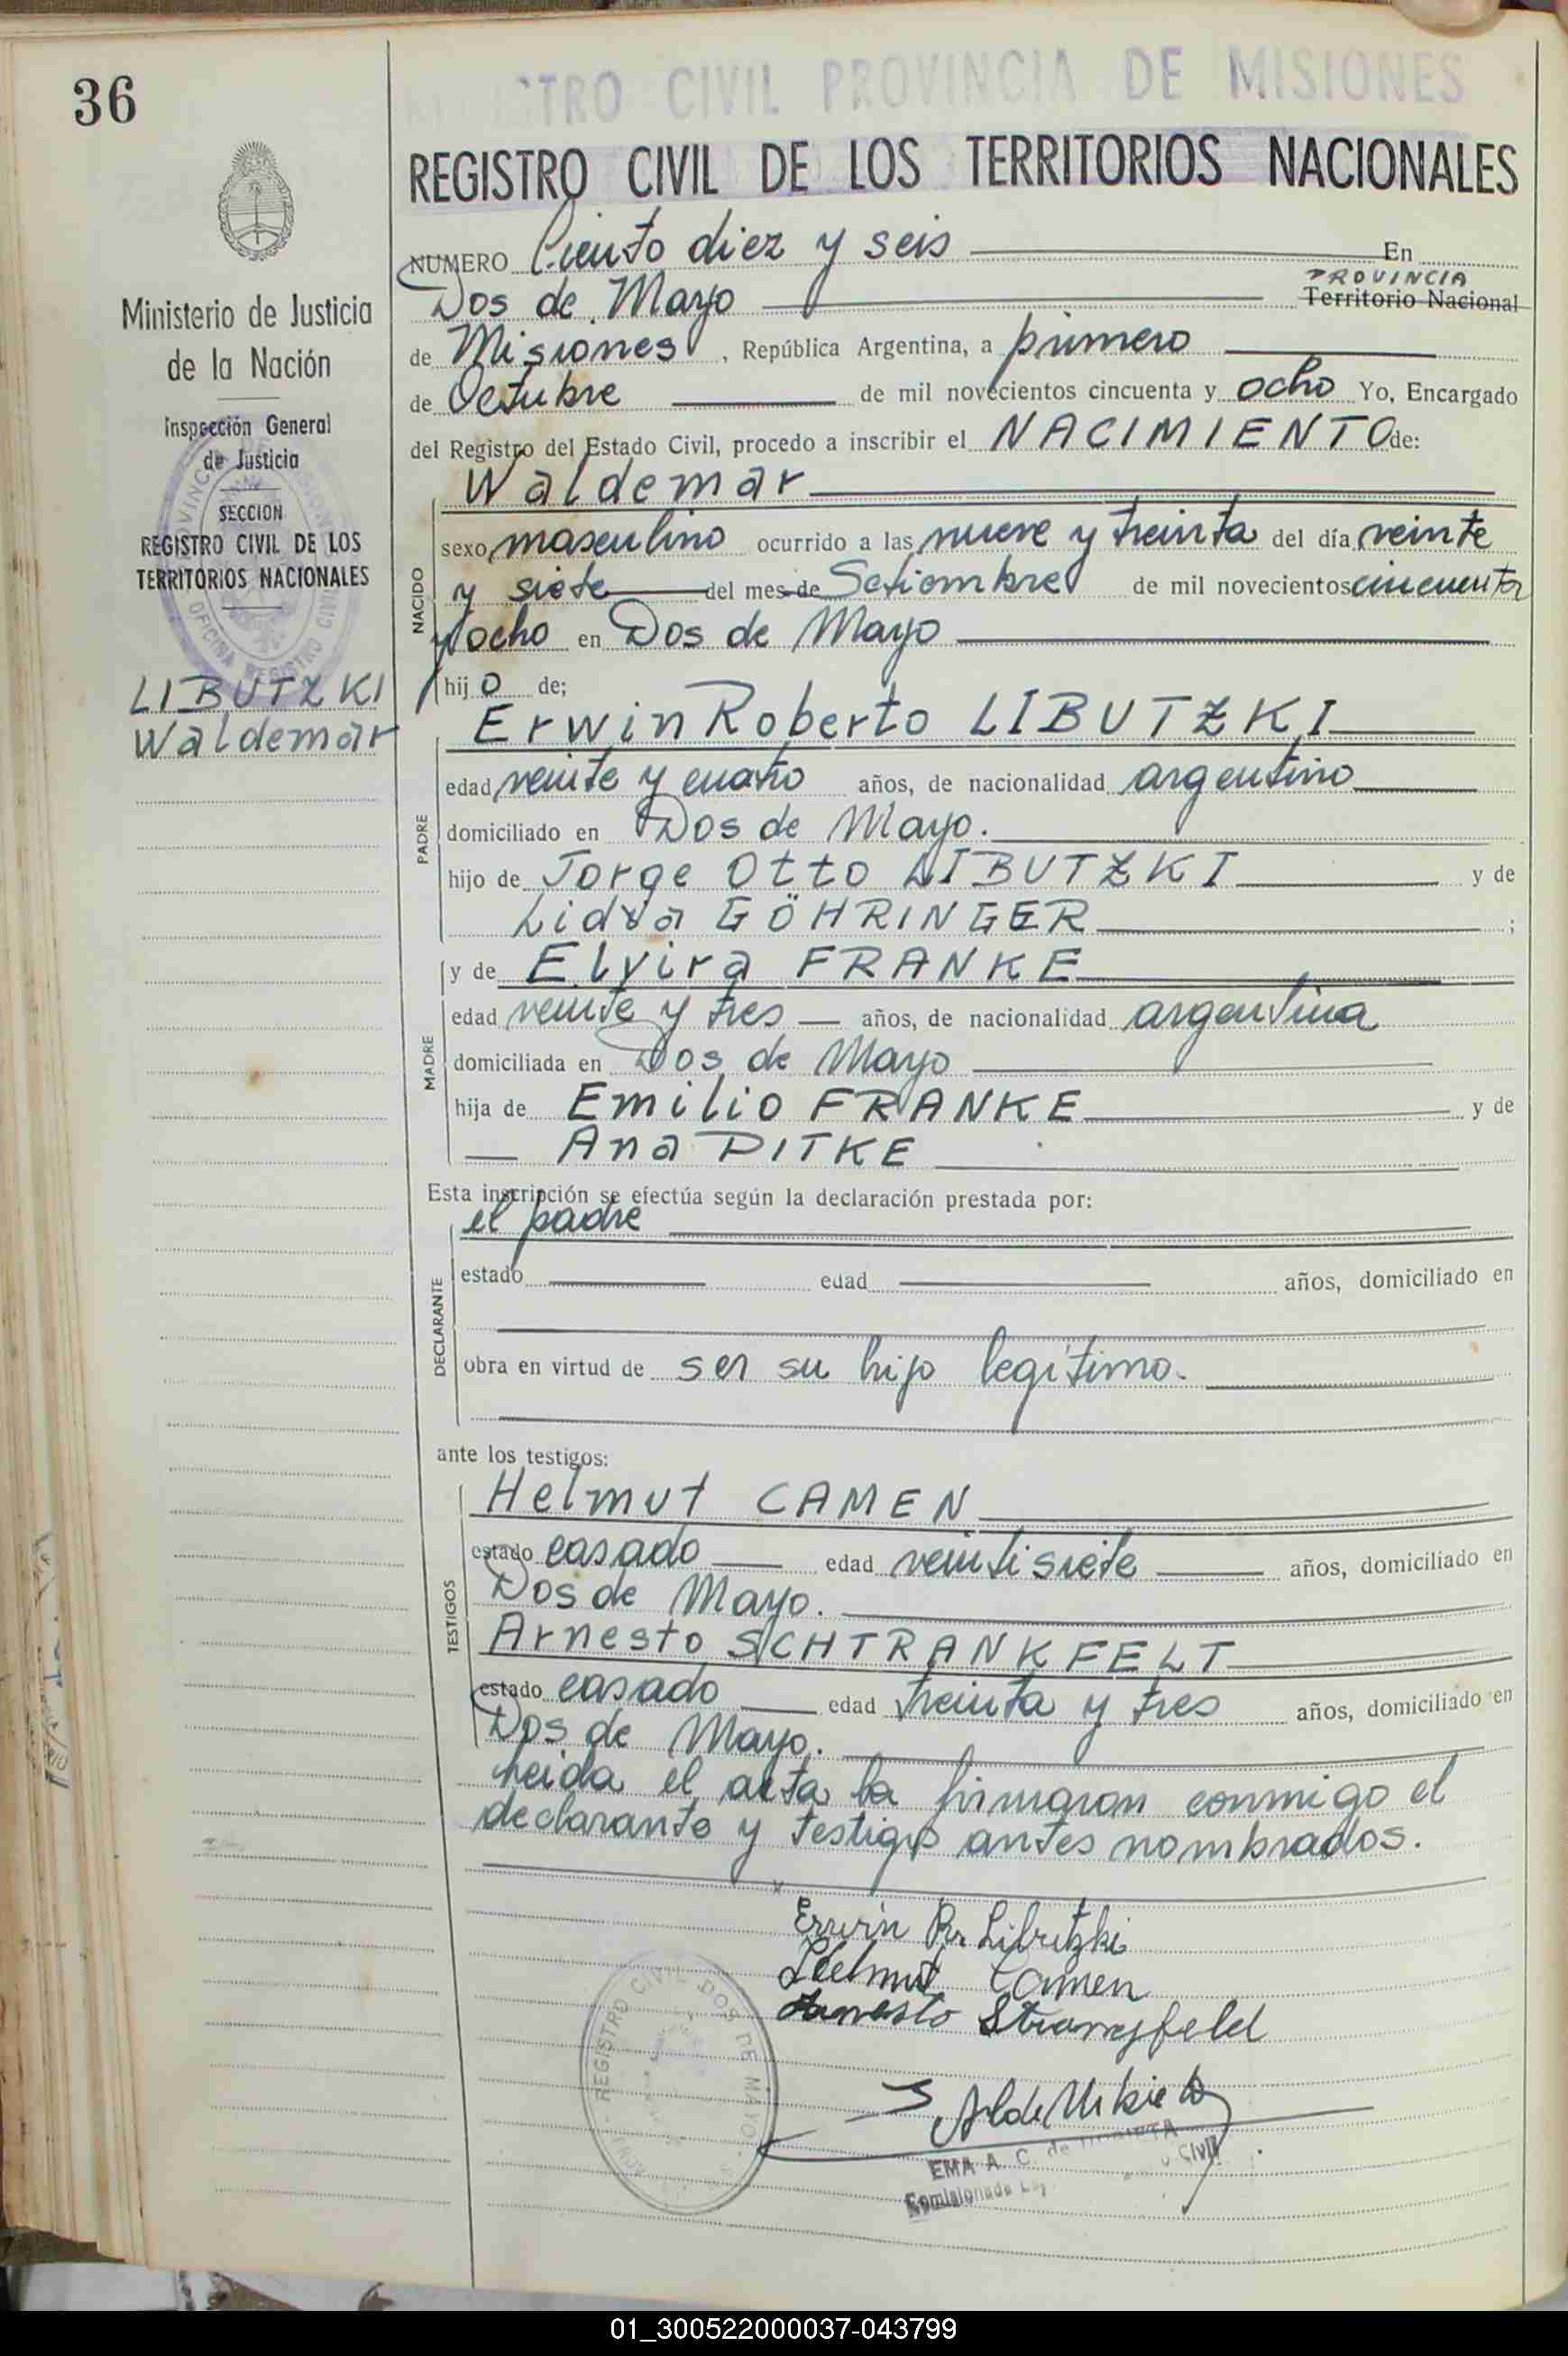 36
REGISTRO CIVIL PROVINCIA DE MISIONES
REGISTRO CIVIL DE LOS TERRITORIOS NACIONALES
Ministerio de Justicia
de la Nación
Inspección General
de Justicia
SECCION
REGISTRO CIVIL DE LOS
TERRITORIOS NACIONALES
LIBUTZKI
Waldemar
NUMERO Ciento diez y seis En
PROVINCIA
Dos de Mayo Territorio Nacional
de Misiones, República Argentina, a primero
de Octubre de mil novecientos cincuenta y ocho Yo, Encargado
del Registro del Estado Civil, procedo a inscribir el NACIMIENTO de:
NACIDO
Waldemar
sexo masculino ocurrido a las nueve y treinta del día veinte
y siete del mes de Setiembre de mil novecientos cincuenta
y ocho en Dos de Mayo
hijo de;
PADRE
Erwin Roberto LIBUTZKI
edad veinte y cuatro años, de nacionalidad argentino
domiciliado en Dos de Mayo.
hijo de Jorge Otto LIBUTZKI y de
Lidya GÖHRINGER ;
MADRE
y de Elvira FRANKE
edad veinte y tres años, de nacionalidad argentina
domiciliada en Dos de Mayo
hija de Emilio FRANKE y de
Ana DITKE
Esta inscripción se efectúa según la declaración prestada por:
DECLARANTE
el padre
estado edad años, domiciliado en
obra en virtud de ser su hijo legítimo.
ante los testigos:
TESTIGOS
Helmut CAMEN
estado casado edad veintisiete años, domiciliado en
Dos de Mayo.
Arnesto SCHTRANKFELT
estado casado edad treinta y tres años, domiciliado en
Dos de Mayo.
Leida el acta la firmaron conmigo el
declarante y testigos antes nombrados.
Erwin R. Libutzki
Helmut Camen
Arnesto Strangfeld
REGISTRO CIVIL DOS DE MAYO
EMA A. C. de URBIETA
Civil
01_300522000037-043799